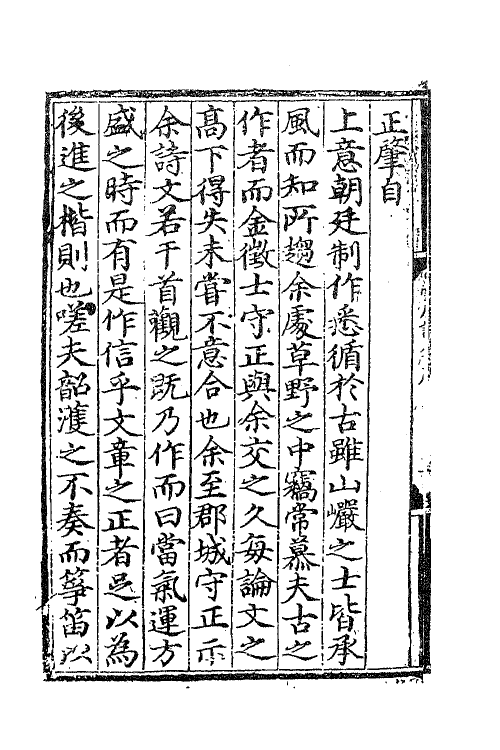 正肇自
上意朝廷制作悉循於古雖山巖之士皆承
風而知所趨余處草野之中竊常慕夫古之
作者而金徵士守正與余交之久每論文之
高下得失未嘗不意合也余至郡城守正示
余詩文若干首觀之旣乃作而曰當氣運方
盛之時而有是作信乎文章之正者足以為
後進之楷則也嗟夫韶濩之不奏而箏笛以